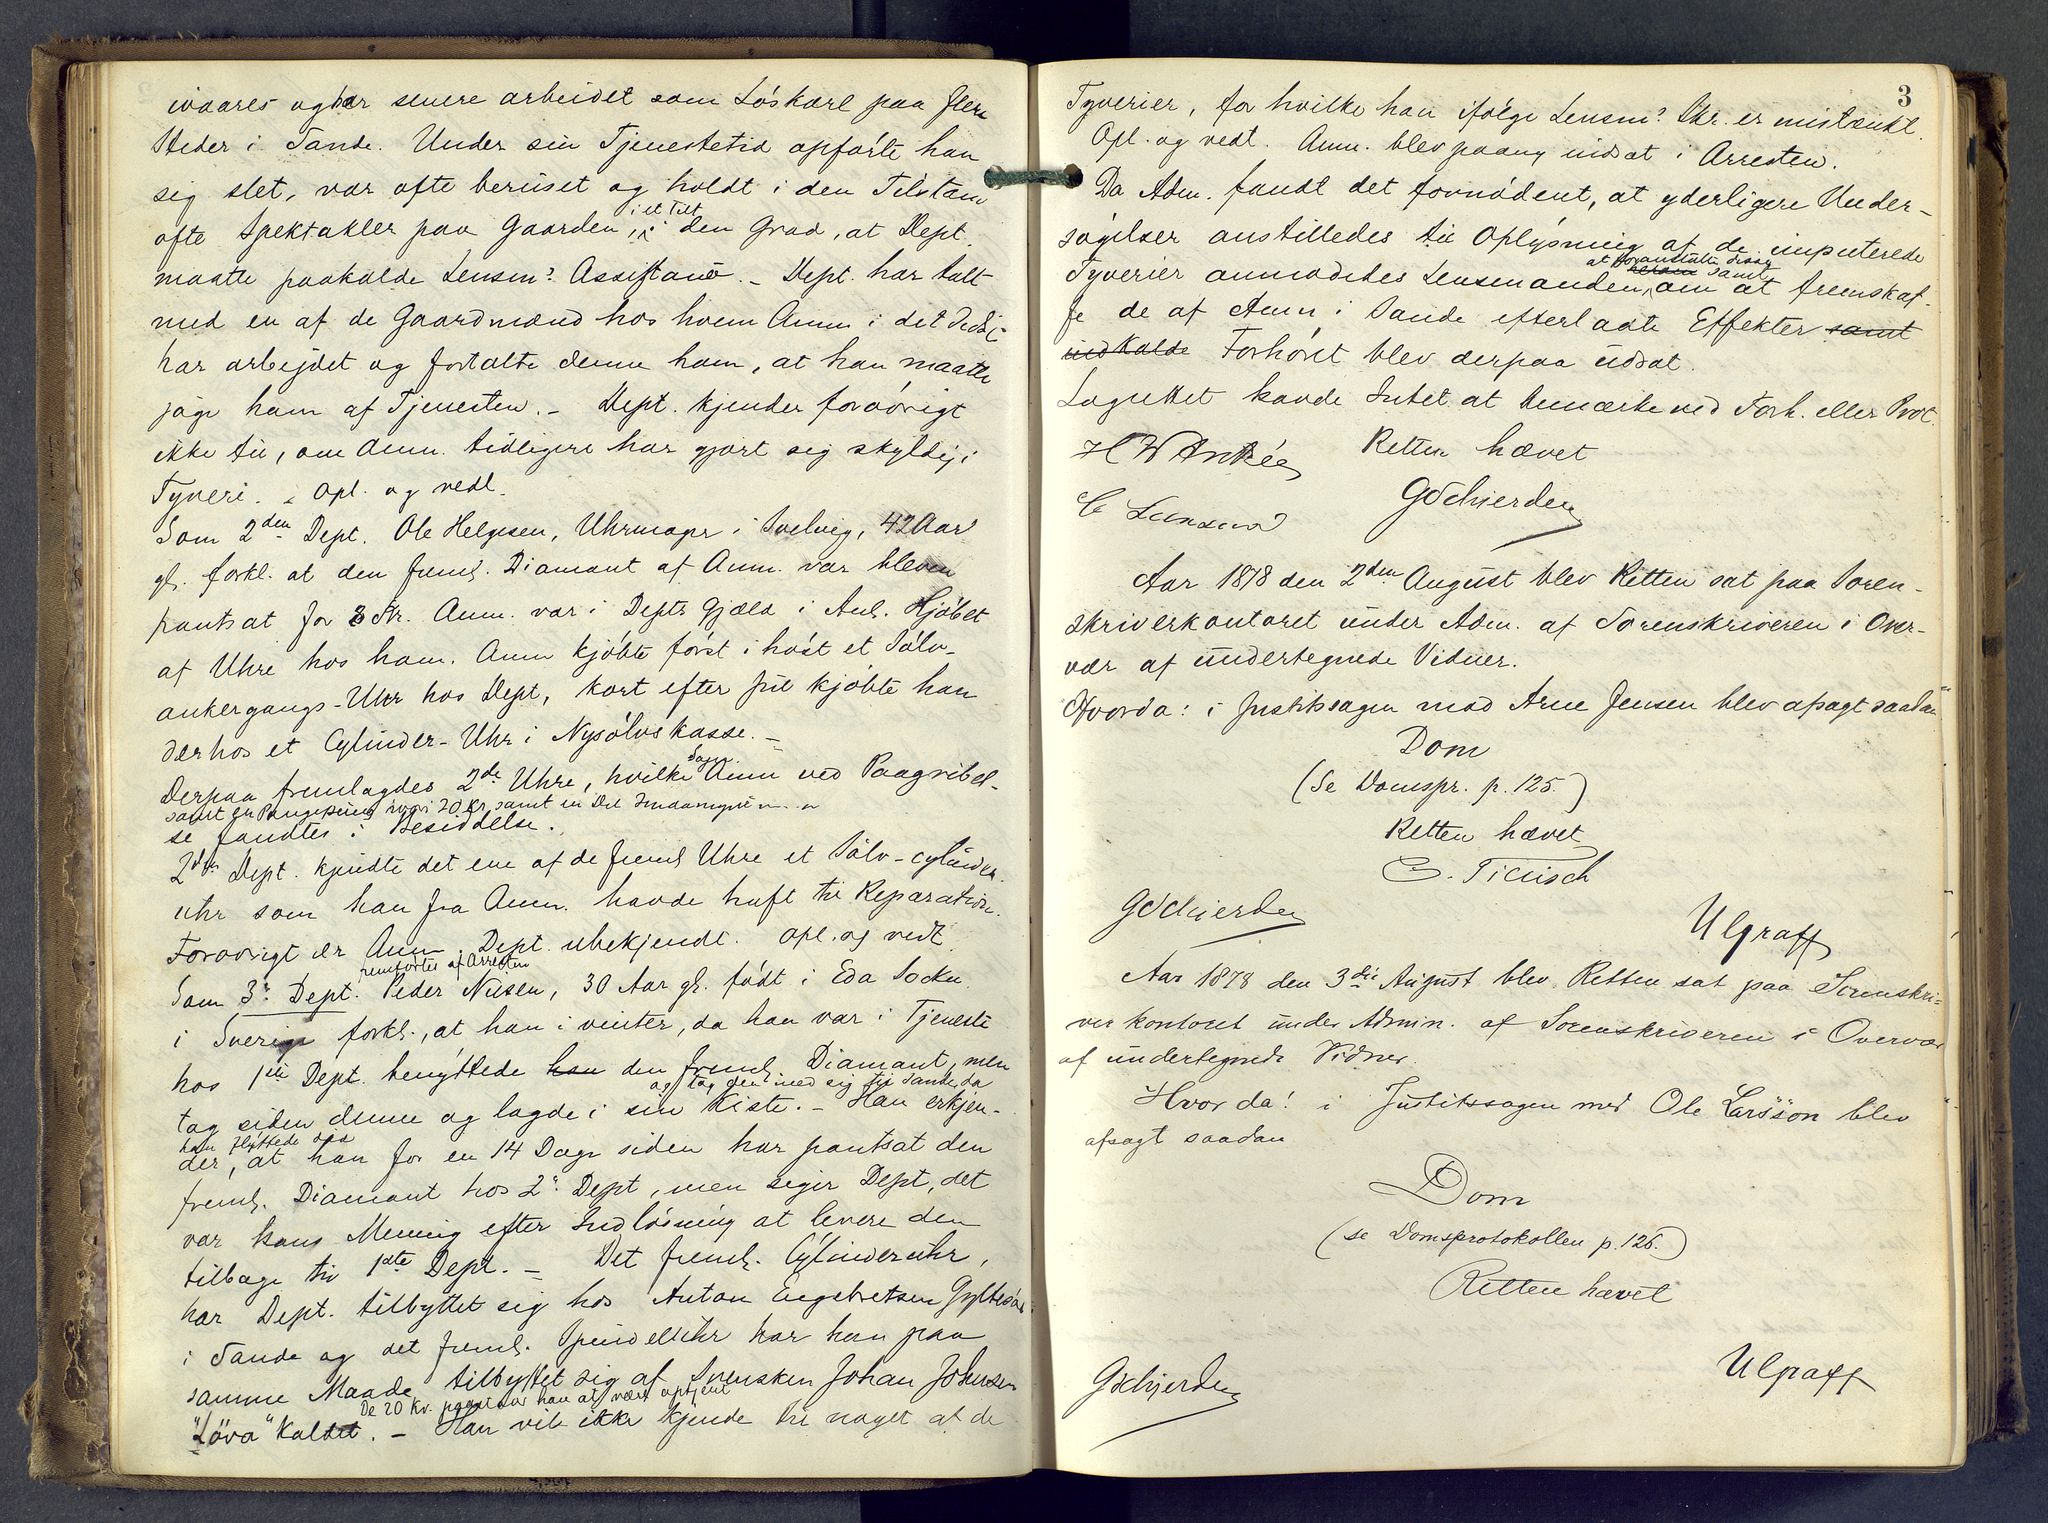 ivaares og har senere arbeidet som Löskarl paa flere
Steder i Sande. Under sin Tjenestetid opførte han
sig slet, var ofte beruset og holdt i den Tilstand
ofte Spektakler paa Gaarden, i et Tilf. i den Grad, at Dept.
maatte paakalde Lensm. Assistance. – Dept. har talt
med en af de Gaardmænd hos hvem Anm. i det
har arbejdet og fortalte denne ham, at han maatte
jage ham af Tjenesten. – Dept. kjender forøvrigt
ikke til, om Anm. tidligere har gjort sig skyldig i
Tyveri. – Opl. og vedt.
Som 2den Dept. Ole Helgesen, Uhrmager i Svelvig, 42 Aar
gl. forkl. at den freml. Diamant af Anm. var bleven
pantsat for 3 Kr. Anm. var i Depts Gjæld i Anl. Kjøbet
af Uhre hos ham. Anm kjøbte først i høst et Sølv-
ankergangs-Uhr hos Dept, kort efter Jul kjøbte han
derhos et Cylinder-Uhr i Nysølvskasse. –
Derpaa fremlagdes 2de Uhre, hvilke Anm ved Paagribel-
samt en Pengepung hvori 20 Kr. samt en Del
se fandtes i Besiddelse.
2den Dept. kjendte det ene af de freml Uhre et Sølv-cylinder
uhr som han fra Anm. havde havt til Reparation.
Forøvrigt er Anm. Dept. ubekjendt. Opl. og vedt.
fremførtes af Arresten
Som 3. Dept. Peder Nilsen, 30 Aar gl. født i Eda Socken
i Sverige forkl., at han i vinter, da han var i Tjeneste
hos 1ste Dept. benyttede han den freml. Diamant, men
og tog den med sig til Sande da
tog siden denne og lagde i sin Kiste. – Han erkjen-
han flyttede did
der, at han for en 14 Dage siden har pantsat den
freml. Diamant hos 2. Dept, men siger Dept, det
var hans Mening efter Indløsning at levere den
tilbage til 1ste Dept. – Det freml. Cylinderuhr,
har Dept. tilbyttet sig hos Anton Engebretsen
i Sande og det freml. Spindeluhr har han paa
samme Maade tilbyttet sig af Svensken Johan Johnsen
De 20 Kr. paastaar han at være optjent
"Löva" kaldet. – Han vil ikke kjende til noget af de
3
Tyverier, for hvilke han ifølge Lensm. Skr. er mistænkt.
Opl. og vedt. Anm. blev paany indsat i Arresten.
Da Adm. fandt det fornødent, at yderligere Under-
søgelser anstilledes til Oplysning af de imputerede
at foranstalte disse
Tyverier anmodedes Lensmanden, om herom samt at fremskaf-
fe de af Anm i Sande efterladte Effekter samt
indkalde Forhöret blev derpaa udsat.
Lagrettet havde Intet at bemærke ved Forh. eller Prot.
Retten hævet
Aar 1878 den 2den August blev Retten sat paa Soren-
skriverkontoret under Adm. af Sorenskriveren i Over-
vær af undertegnede Vidner.
Hvorda: i Justitssagen mod Arne Jensen blev afsagt saadan
Dom
(Se Domspr. p. 125.)
Retten hævet
Ulgraff
Aar 1878 den 3die August blev Retten sat paa Sorenskri-
verkontoret under Admin. af Sorenskriveren i Overvær
af undertegnede Vidner.
Hvorda: i Justitssagen mod Ole Larsson blev
afsagt saadan
Dom
(se Domsprotokollen p. 126.)
Retten hævet
Ulgraff